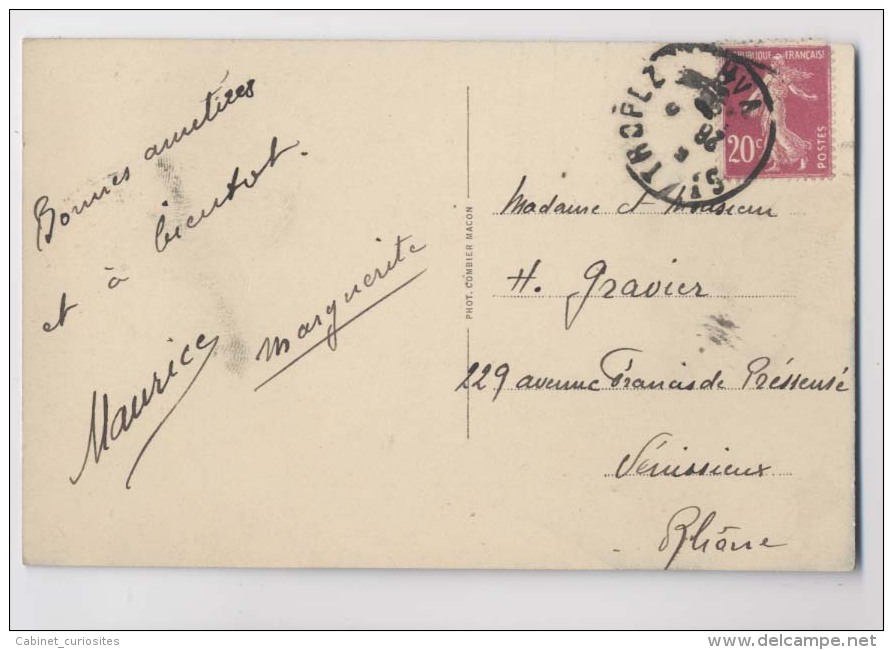 Bonnes amitiés
et à bientot.
Maurice
Marguerite
PHOT. COMBIER MACON
RÉPUBLIQUE FRANÇAISE
20c
POSTES
ST TROPEZ
VAR
28
Madame et Monsieur
H. Gravier
229 avenue Francis de Préssensé
Vénissieux
Rhône
Cabinet_curiosites
www.delcampe.net